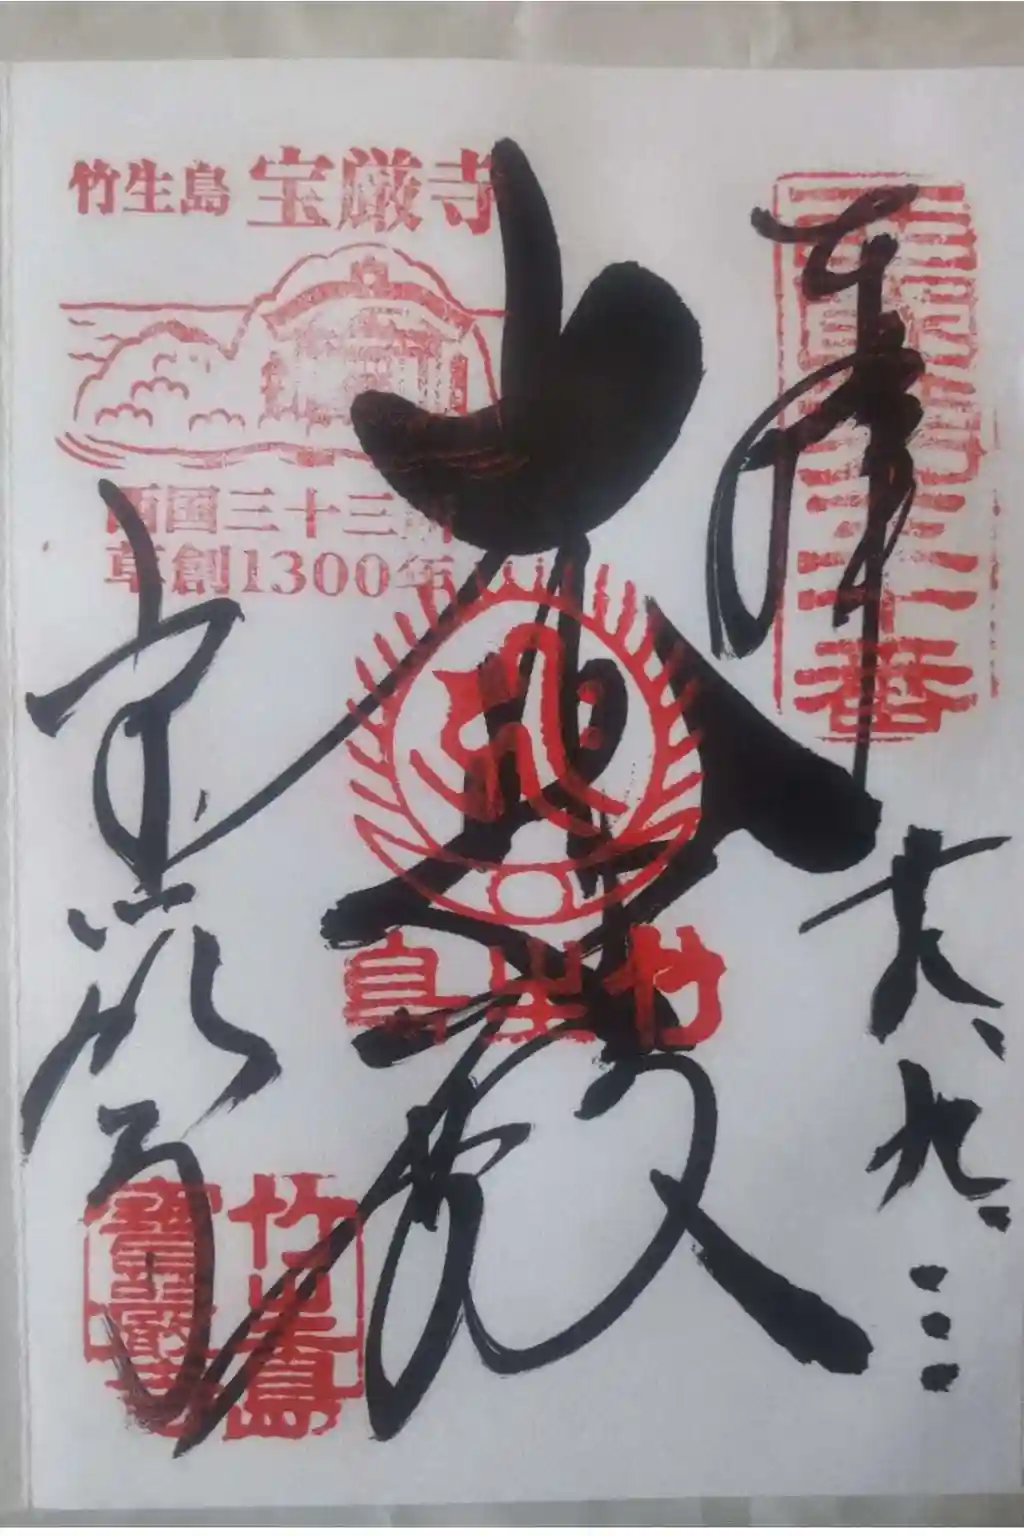 竹生島 宝厳寺
西国三十三所
草創1300年
奉拝
西国第三十番
大悲殿
竹生島
宝厳寺
竹生島
寶嚴寺